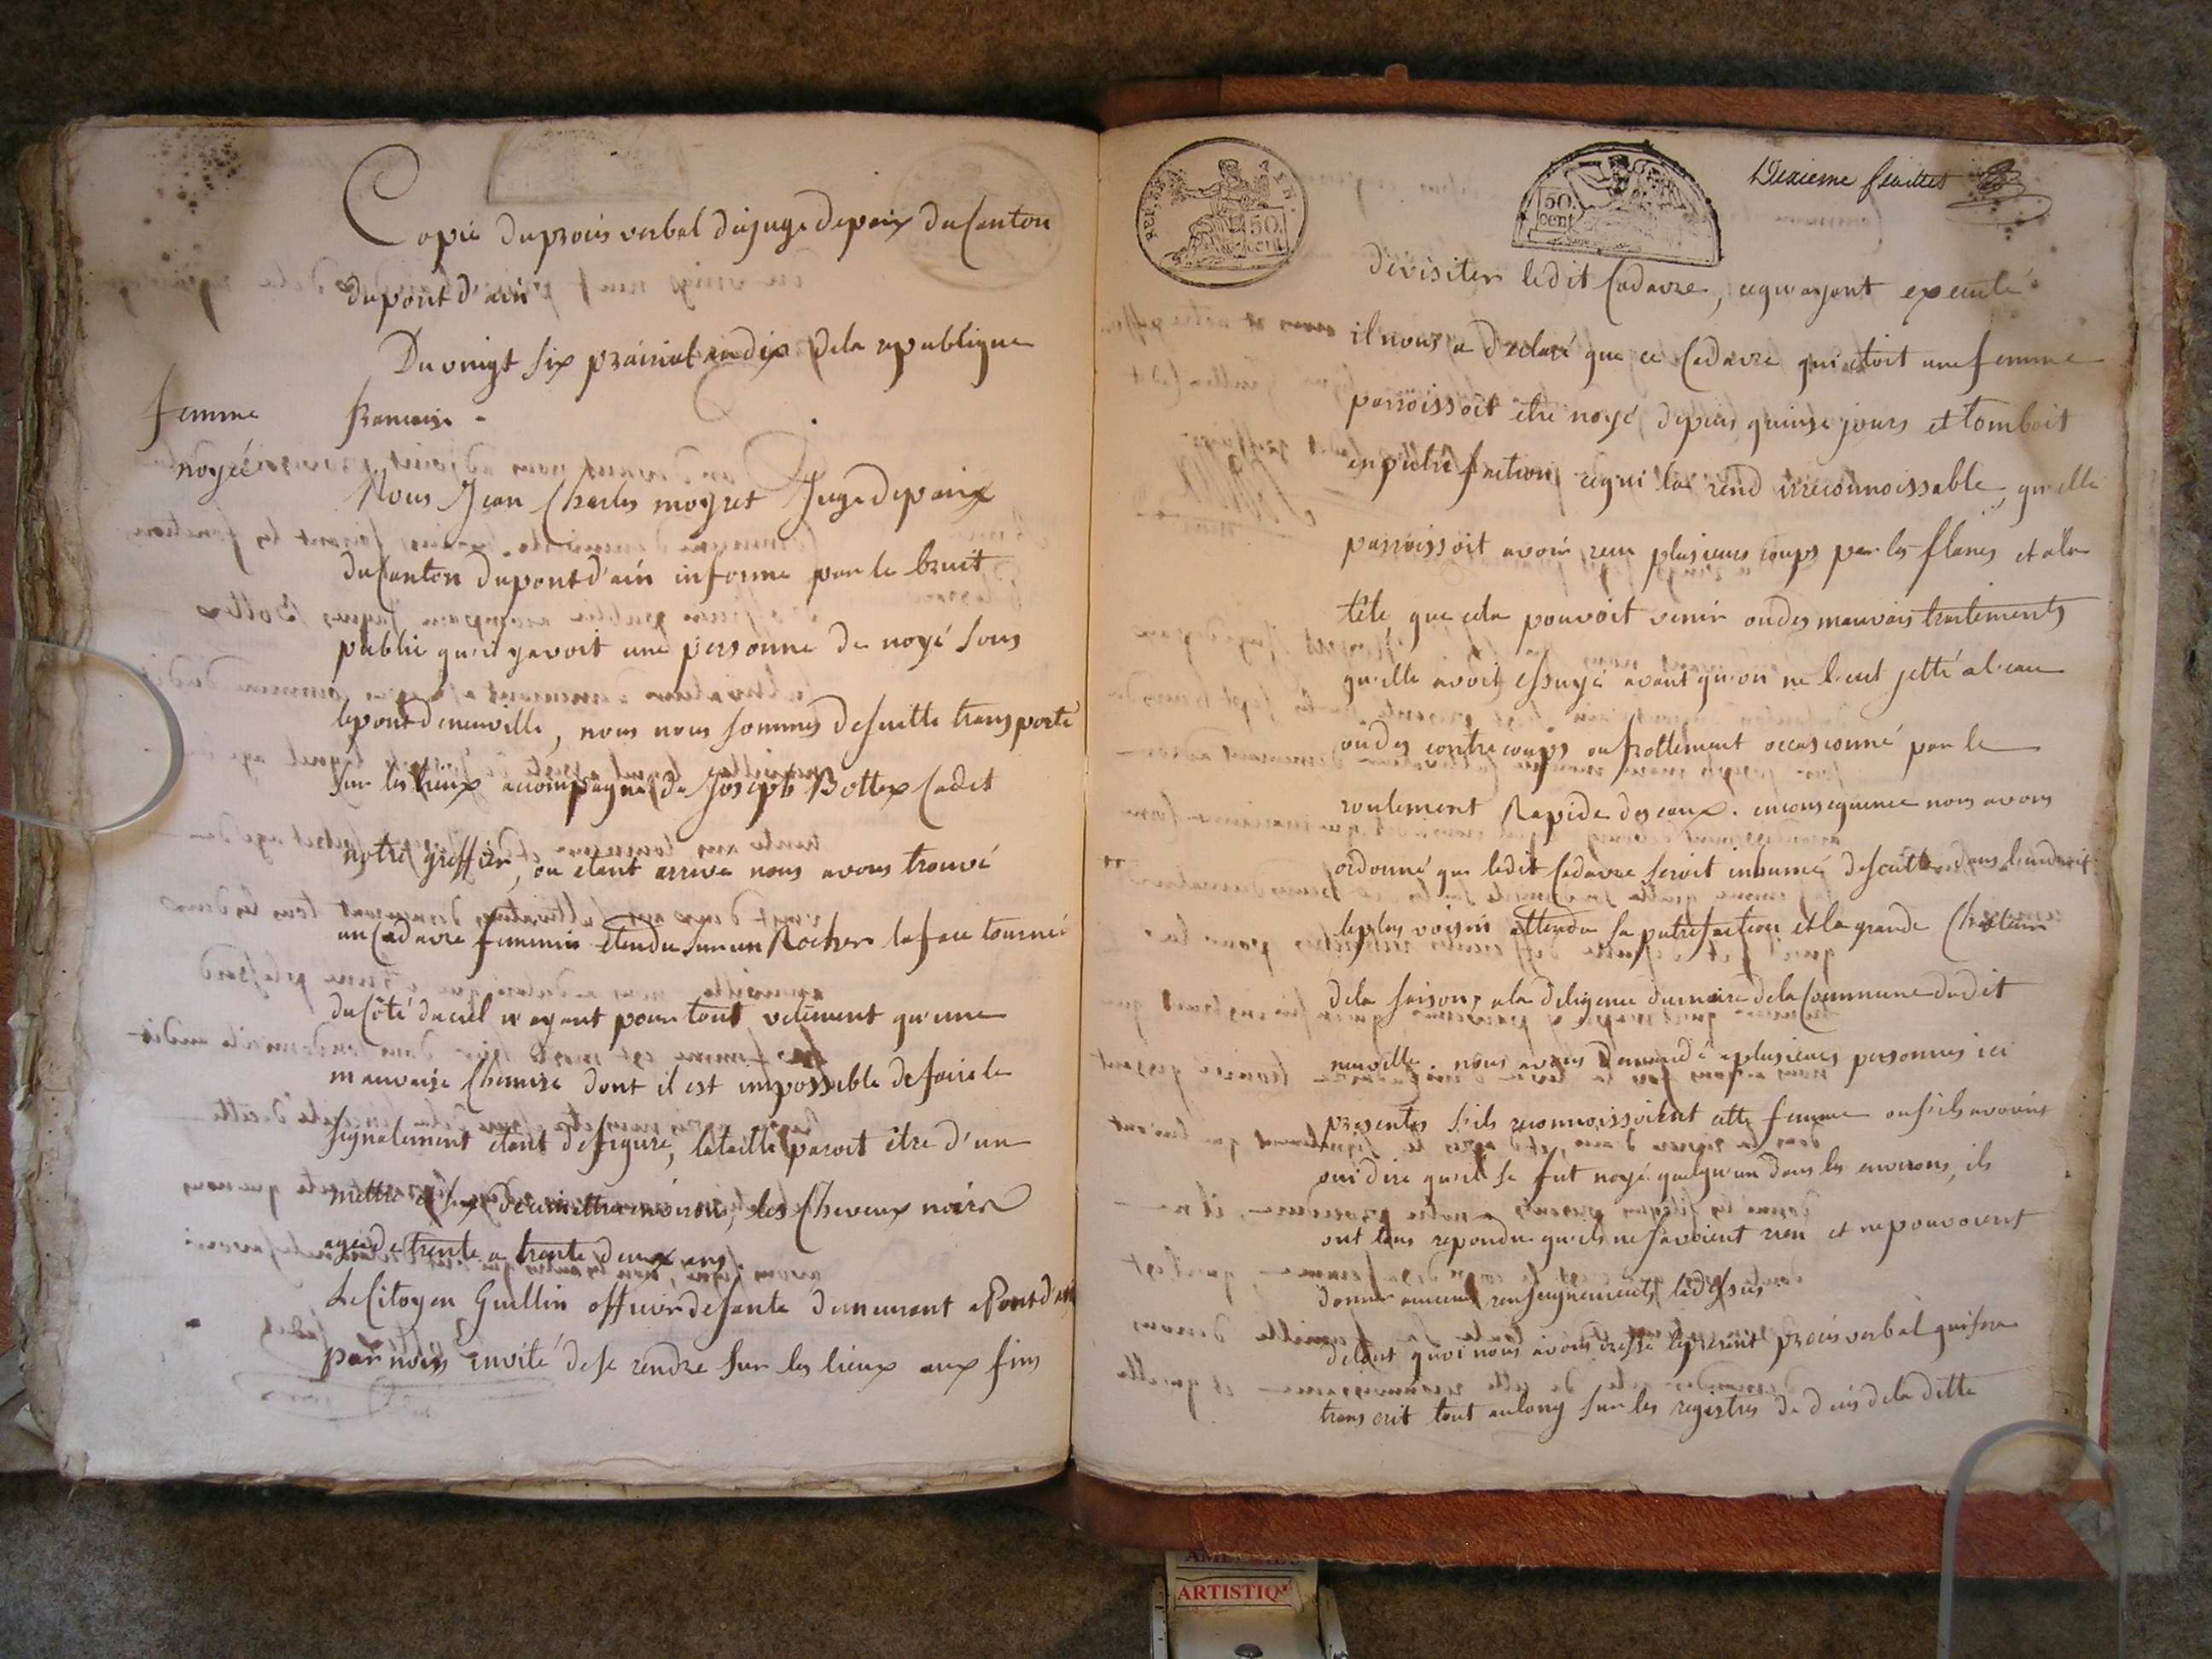 Copie du procès verbal du juge de paix du Canton
du pont d'ain
Du vingt six prairial an dix de la republique
femme
francaise -
noyée
Nous Jean Charles moyret Juge de paix
du Canton du pont d'ain informé par le bruit
public qu'il y avoit une personne de noyé sous
le pont de neuville, nous nous sommes de suitte transporté
sur les lieux accompagné de Joseph Bottex Cadet
notre greffier, ou etant arrivé nous avons trouvé
un Cadavre feminin etendu sur un Rocher la face tournée
du Côté du ciel n'ayant pour tout vetement qu'une
mauvaise Chemise dont il est impossible de faire le
signalement etant defiguré, la taille paroit être d'un
mettre et six decimettres environ, les Cheveux noirs
agée de trente a trente deux ans.
Le Citoyen Guillin officier de santé demeurant a Pont d'ain
par nous invité de se rendre sur les lieux aux fins
BEL. 50. cent.
50. cent
Dixieme feuillet
de visiter ledit Cadavre, ce qu'ayant executé
il nous a declaré que ce Cadavre qui etoit une femme
parroissoit etre noyé depuis quinse jours et tomboit
en putrefaction ce qui la rend irreconnoissable, qu'elle
parroissoit avoir reçu plusieurs coups par les flancs et a la
tête, que cela pouvoit venir ou des mauvais traitements
qu'elle avoit essuyé avant qu'on ne l'eut jetté a l'eau
ou des contrecoups ou frottement occasionné par le
roulement Rapide des eaux. en consequence nous avons
ordonné que ledit Cadavre seroit inhumé de suitte dans l'endroit
le plus voisin attendu sa putrefaction et la grande Chaleur
de la saison, a la diligence du maire de la Commune dudit
neuville. nous avons demandé a plusieurs personnes ici
presentes s'ils reconnoissoient cette femme ou s'ils avoient
oui dire qu'il se fut noyé quelqu'un dans les environs, ils
ont tous repondu qu'ils ne savoient rien et ne pouvoient
donner aucuns renseignements la dessus
de tout quoi nous avons dressé le present procès verbal qui sera
transcrit tout au long sur les registres de deces de la ditte
ARTISTIQ